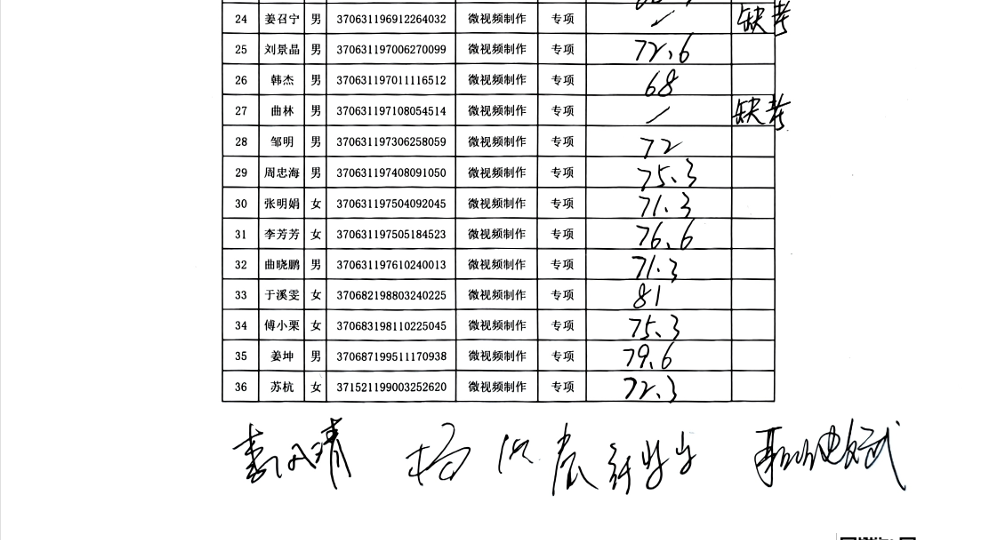 24 姜召宁 男 370631196912264032 微视频制作 专项 / 缺考
25 刘景晶 男 370631197006270099 微视频制作 专项 72.6
26 韩杰 男 370631197011116512 微视频制作 专项 68
27 曲林 男 370631197108054514 微视频制作 专项 / 缺考
28 邹明 男 370631197306258059 微视频制作 专项 72
29 周忠海 男 370631197408091050 微视频制作 专项 75.3
30 张明娟 女 370631197504092045 微视频制作 专项 71.3
31 李芳芳 女 370631197505184523 微视频制作 专项 76.6
32 曲晓鹏 男 370631197610240013 微视频制作 专项 71.3
33 于溪雯 女 370682198803240225 微视频制作 专项 81
34 傅小栗 女 370683198110225045 微视频制作 专项 75.3
35 姜坤 男 370687199511170938 微视频制作 专项 79.6
36 苏杭 女 371521199003252620 微视频制作 专项 72.3